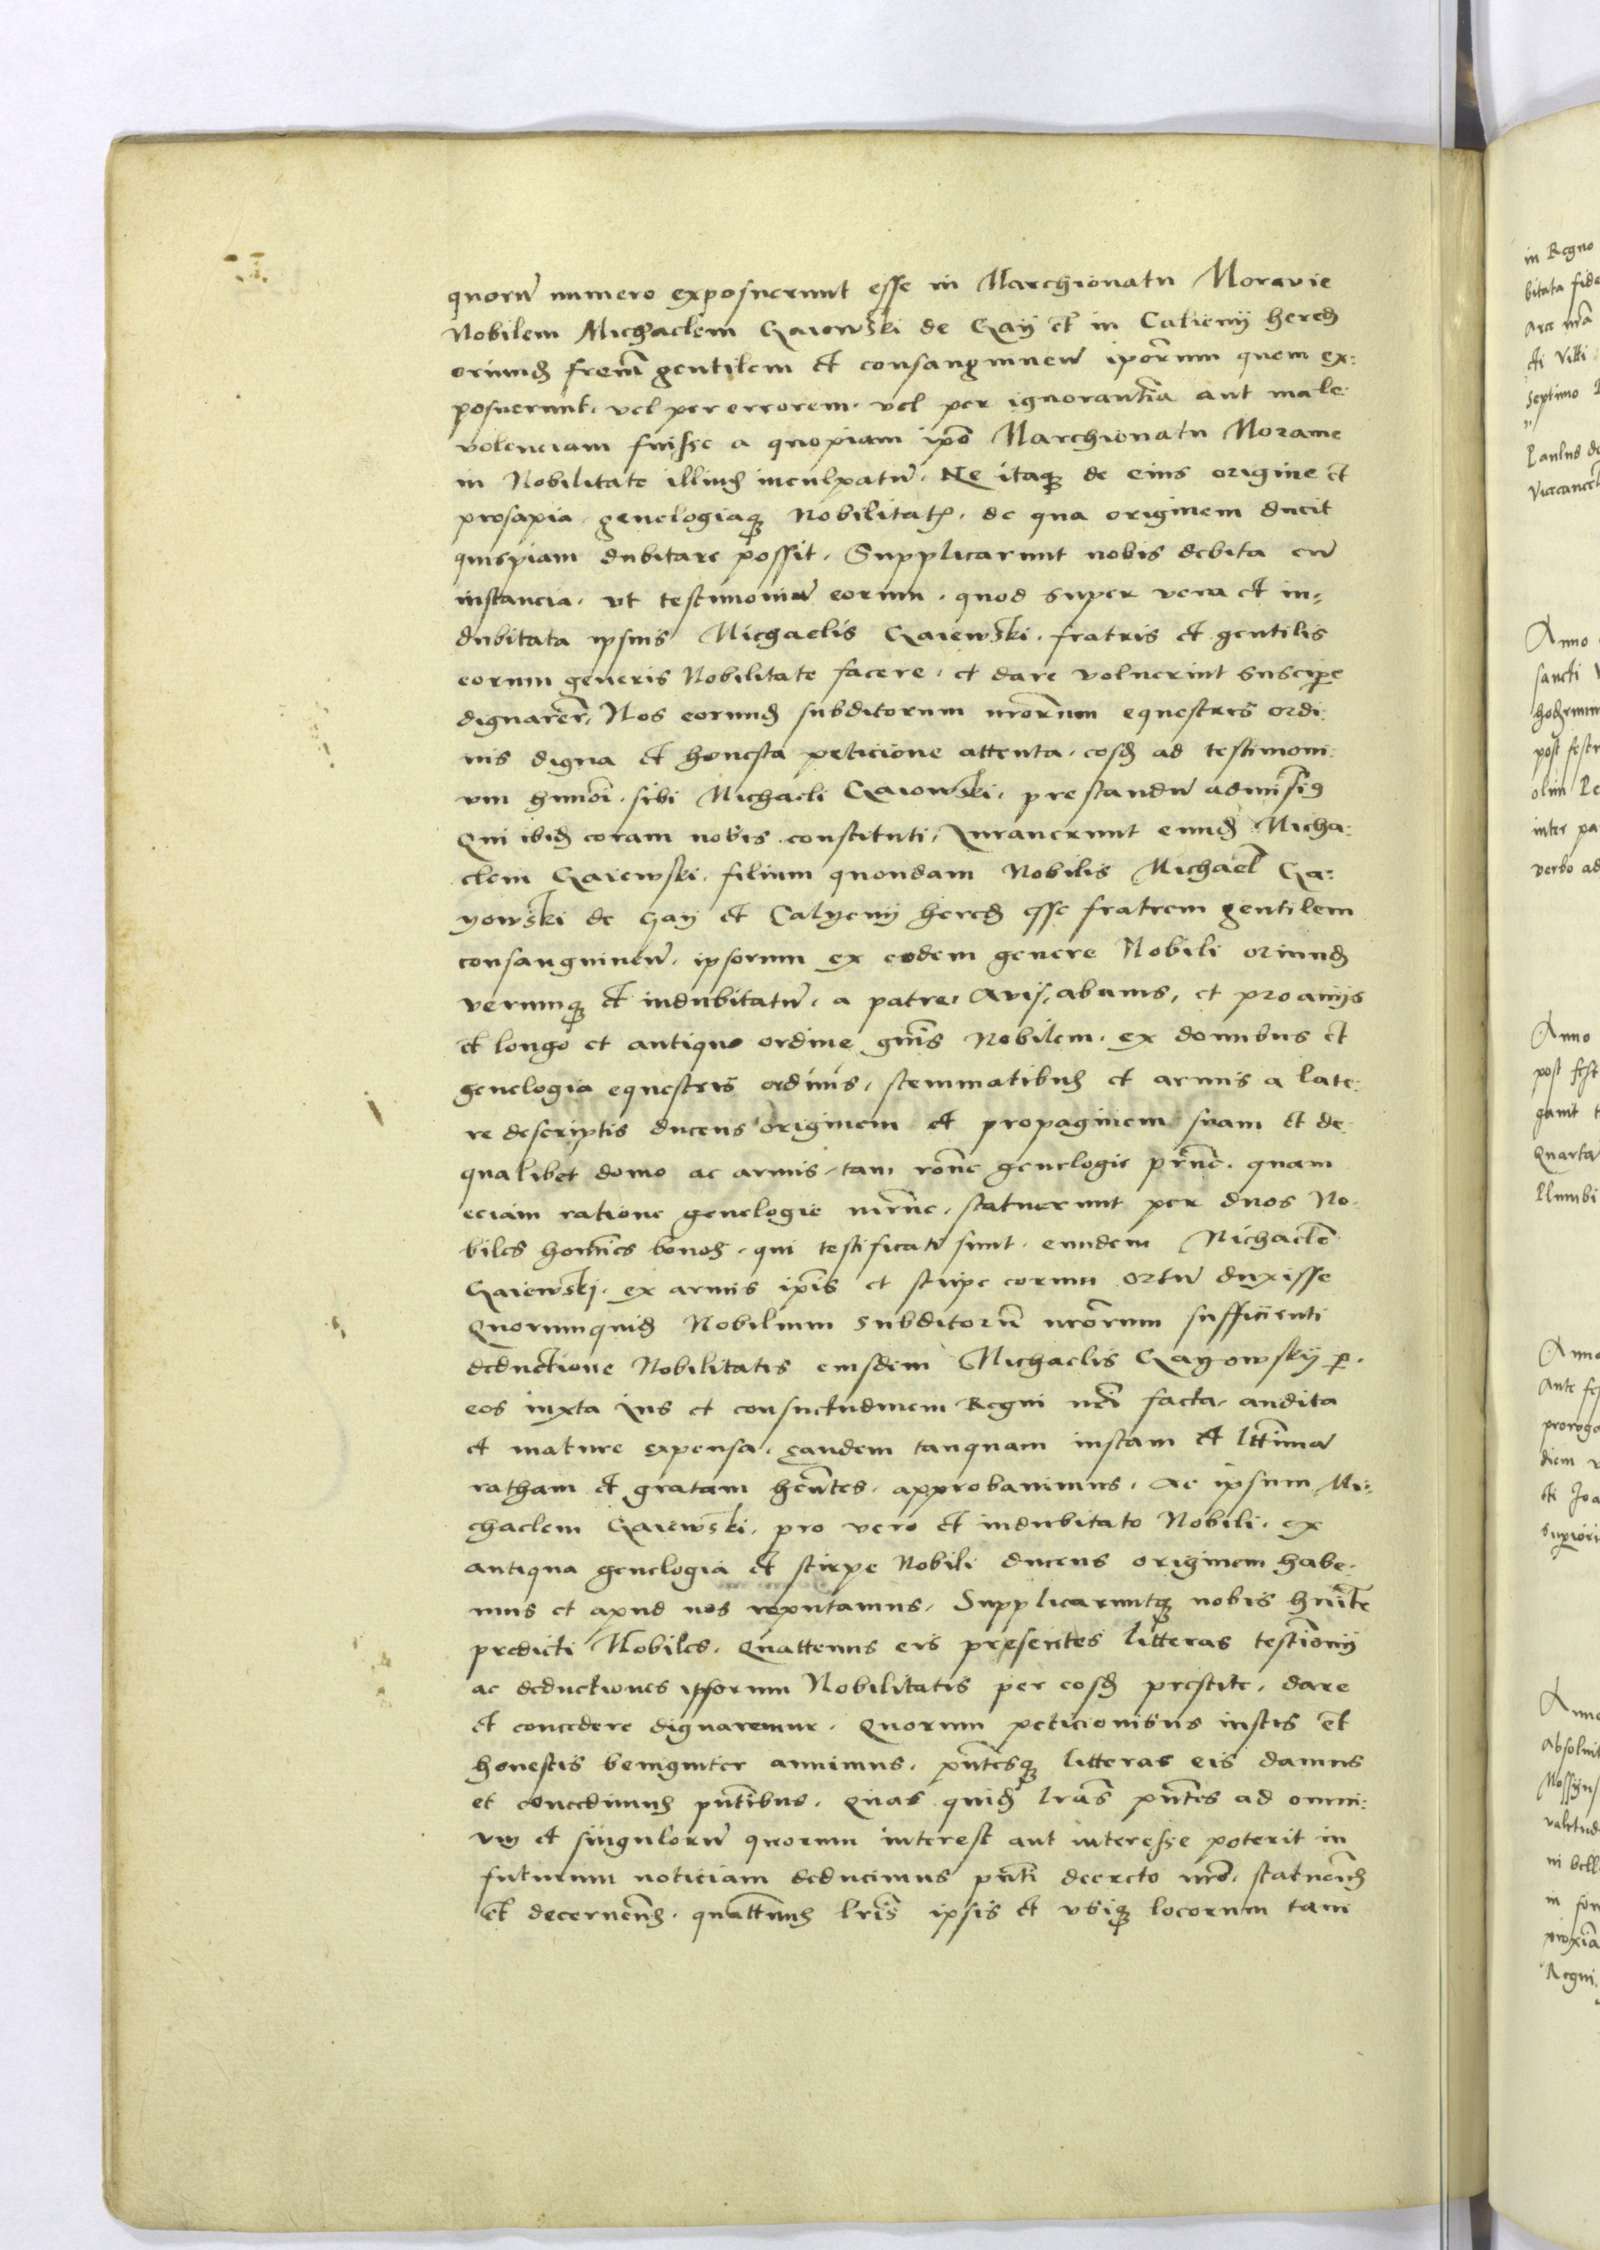 quorū numero exposuerunt esse in Marchionatu Moravie
Nobilem Michaelem Gaiowski de Gaÿ et in Calieny hered
oriund frēm gentilem et consanguineū ipōrum quem ex:
posuerunt. vel per errorem. vel per ignorantiā aut male
volenciam fuisse a quopiam ipō Marchionatu Moravie
in Nobilitate illius inculpatū. Ne itaq de eius origine et
prosapia genelogiaq Nobilitatis. de qua originem ducit
quispiam dubitare possit. Supplicarunt nobis debita cū
instancia. vt testimoniū eorum. quod super vera et in=
dubitata ipsius Michaelis Gaiewski. fratris et gentilis
eorum generis Nobilitate facere. et dare voluerint suscipe
dignarēr. Nos eorund subditorum nrōrum equestris ordi:
nis digna et honesta peticione attenta. eosd ad testimoni:
um hmōi. sibi Michaeli Gaiowski. prestandū admisimus
Qui ibid coram nobis constituti. Iuraverunt eund Micha:
elem Gaiewski. filium quondam Nobilis Michael Ga:
yowski de Gaÿ et Calyeny hered esse fratrem gentilem
consanguineū. ipsorum ex eodem genere Nobili oriund
verumq et indubitatū. a patre. avis. abavis. et proavijs
et longo et antiquo ordine gnīs Nobilem. ex domibus et
genelogia equestris ordinis. stemmatibus et armis a late:
re descriptis ducens originem et propaginem suam et de
qualibet domo ac armis. tam rōne genelogie prnē. quam
eciam ratione genelogie mrnē. statuerunt per duos No:
biles homīes bonos. qui testificati sunt. eundem Michaelē
Gaiewskj. ex armis ipīs et stirpe eorum ortū duxisse
Quorumquid Nobilium subditorū nrōrum sufficienti
deductione Nobilitatis eiusdem Michaelis Gayowskij p.
eos iuxta Ius et consuetudinem Regni nrī facta. audita
et mature expensa. eandem tanquam iustam et lttimā
ratham et gratam hēntes. approbavimus. Ac ipsum Mi:
chaelem Gaiewski. pro vero et indubitato Nobili. ex
antiqua genelogia et stirpe Nobili ducens originem habe:
mus et apud nos reputamus. Supplicaruntq nobis
predicti Nobiles. Quattenus eis presentes litteras testimonij
ac deductiones ipsorum Nobilitatis per eosd prestite. dare
et concedere dignaremur. Quorum peticionibus iustis et
honestis benigniter annimus. pntesq litteras eis damus
et concedimus pntibus. Quas quid lrās pntes ad omni:
um et singulorū quorum interest aut interesse poterit in
futurum noticiam deducimus pnti decreto nrō. statuend
et decernend. quattenus lris ipsis et vbiq locorum tam